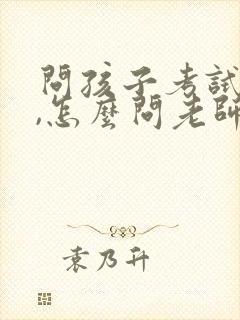 問孩子考試
,怎麼問老師
袁乃升